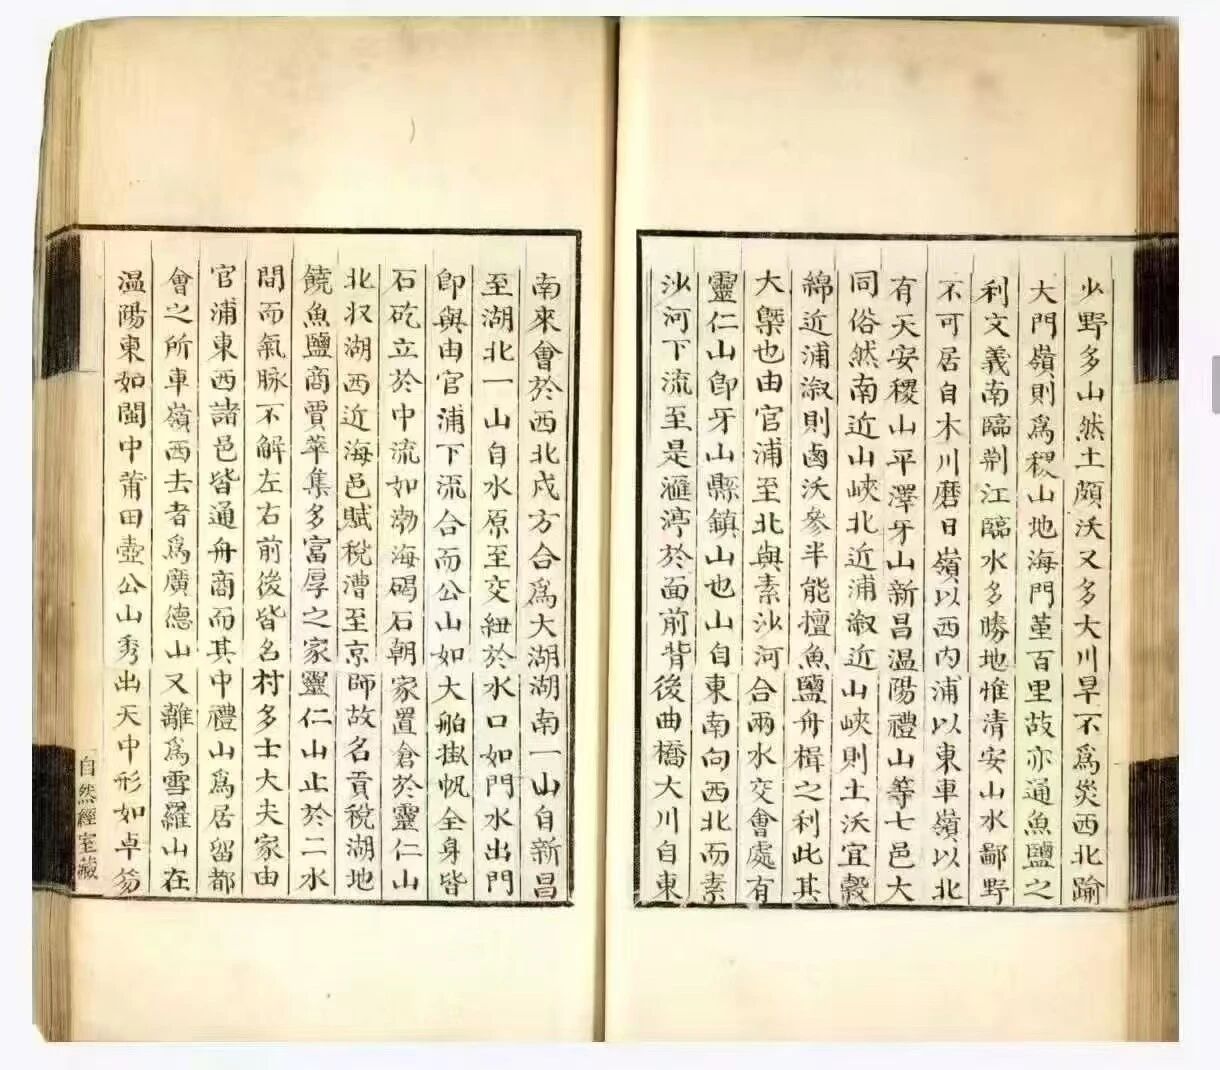 少野多山然土頗沃又多大川旱不為災西北踰
大門嶺則為稷山地海門堇百里故亦通魚鹽之
利文義南臨荆江臨水多勝地惟清安山水鄙野
不可居自木川磨日嶺以西内浦以東車嶺以北
有天安稷山平澤牙山新昌温陽禮山等七邑大
同俗然南近山峽北近浦溆近山峽則土沃宜穀
綿近浦溆則鹵沃參半能擅魚鹽舟楫之利此其
大槩也由官浦至北與素沙河合兩水交會處有
靈仁山卽牙山縣鎮山也山自東南向西北而素
沙河下流至是滙渟於面前背後曲橋大川自東
南來會於西北戍方合為大湖湖南一山自新昌
至湖北一山自水原至交紐於水口如門水出門
卽與由官浦下流合而公山如大舶掛帆全身皆
石矻立於中流如渤海碣石朝家置倉於靈仁山
北収湖西近海邑賦稅漕至京師故名貢稅湖地
饒魚鹽商賈萃集多富厚之家靈仁山止於二水
間而氣脉不解左右前後皆名村多士大夫家由
官浦東西諸邑皆通舟商而其中禮山為居留都
會之所車嶺西去者為廣德山又離為雪羅山在
温陽東如閩中莆田壺公山秀出天中形如卓笏
自然經室藏